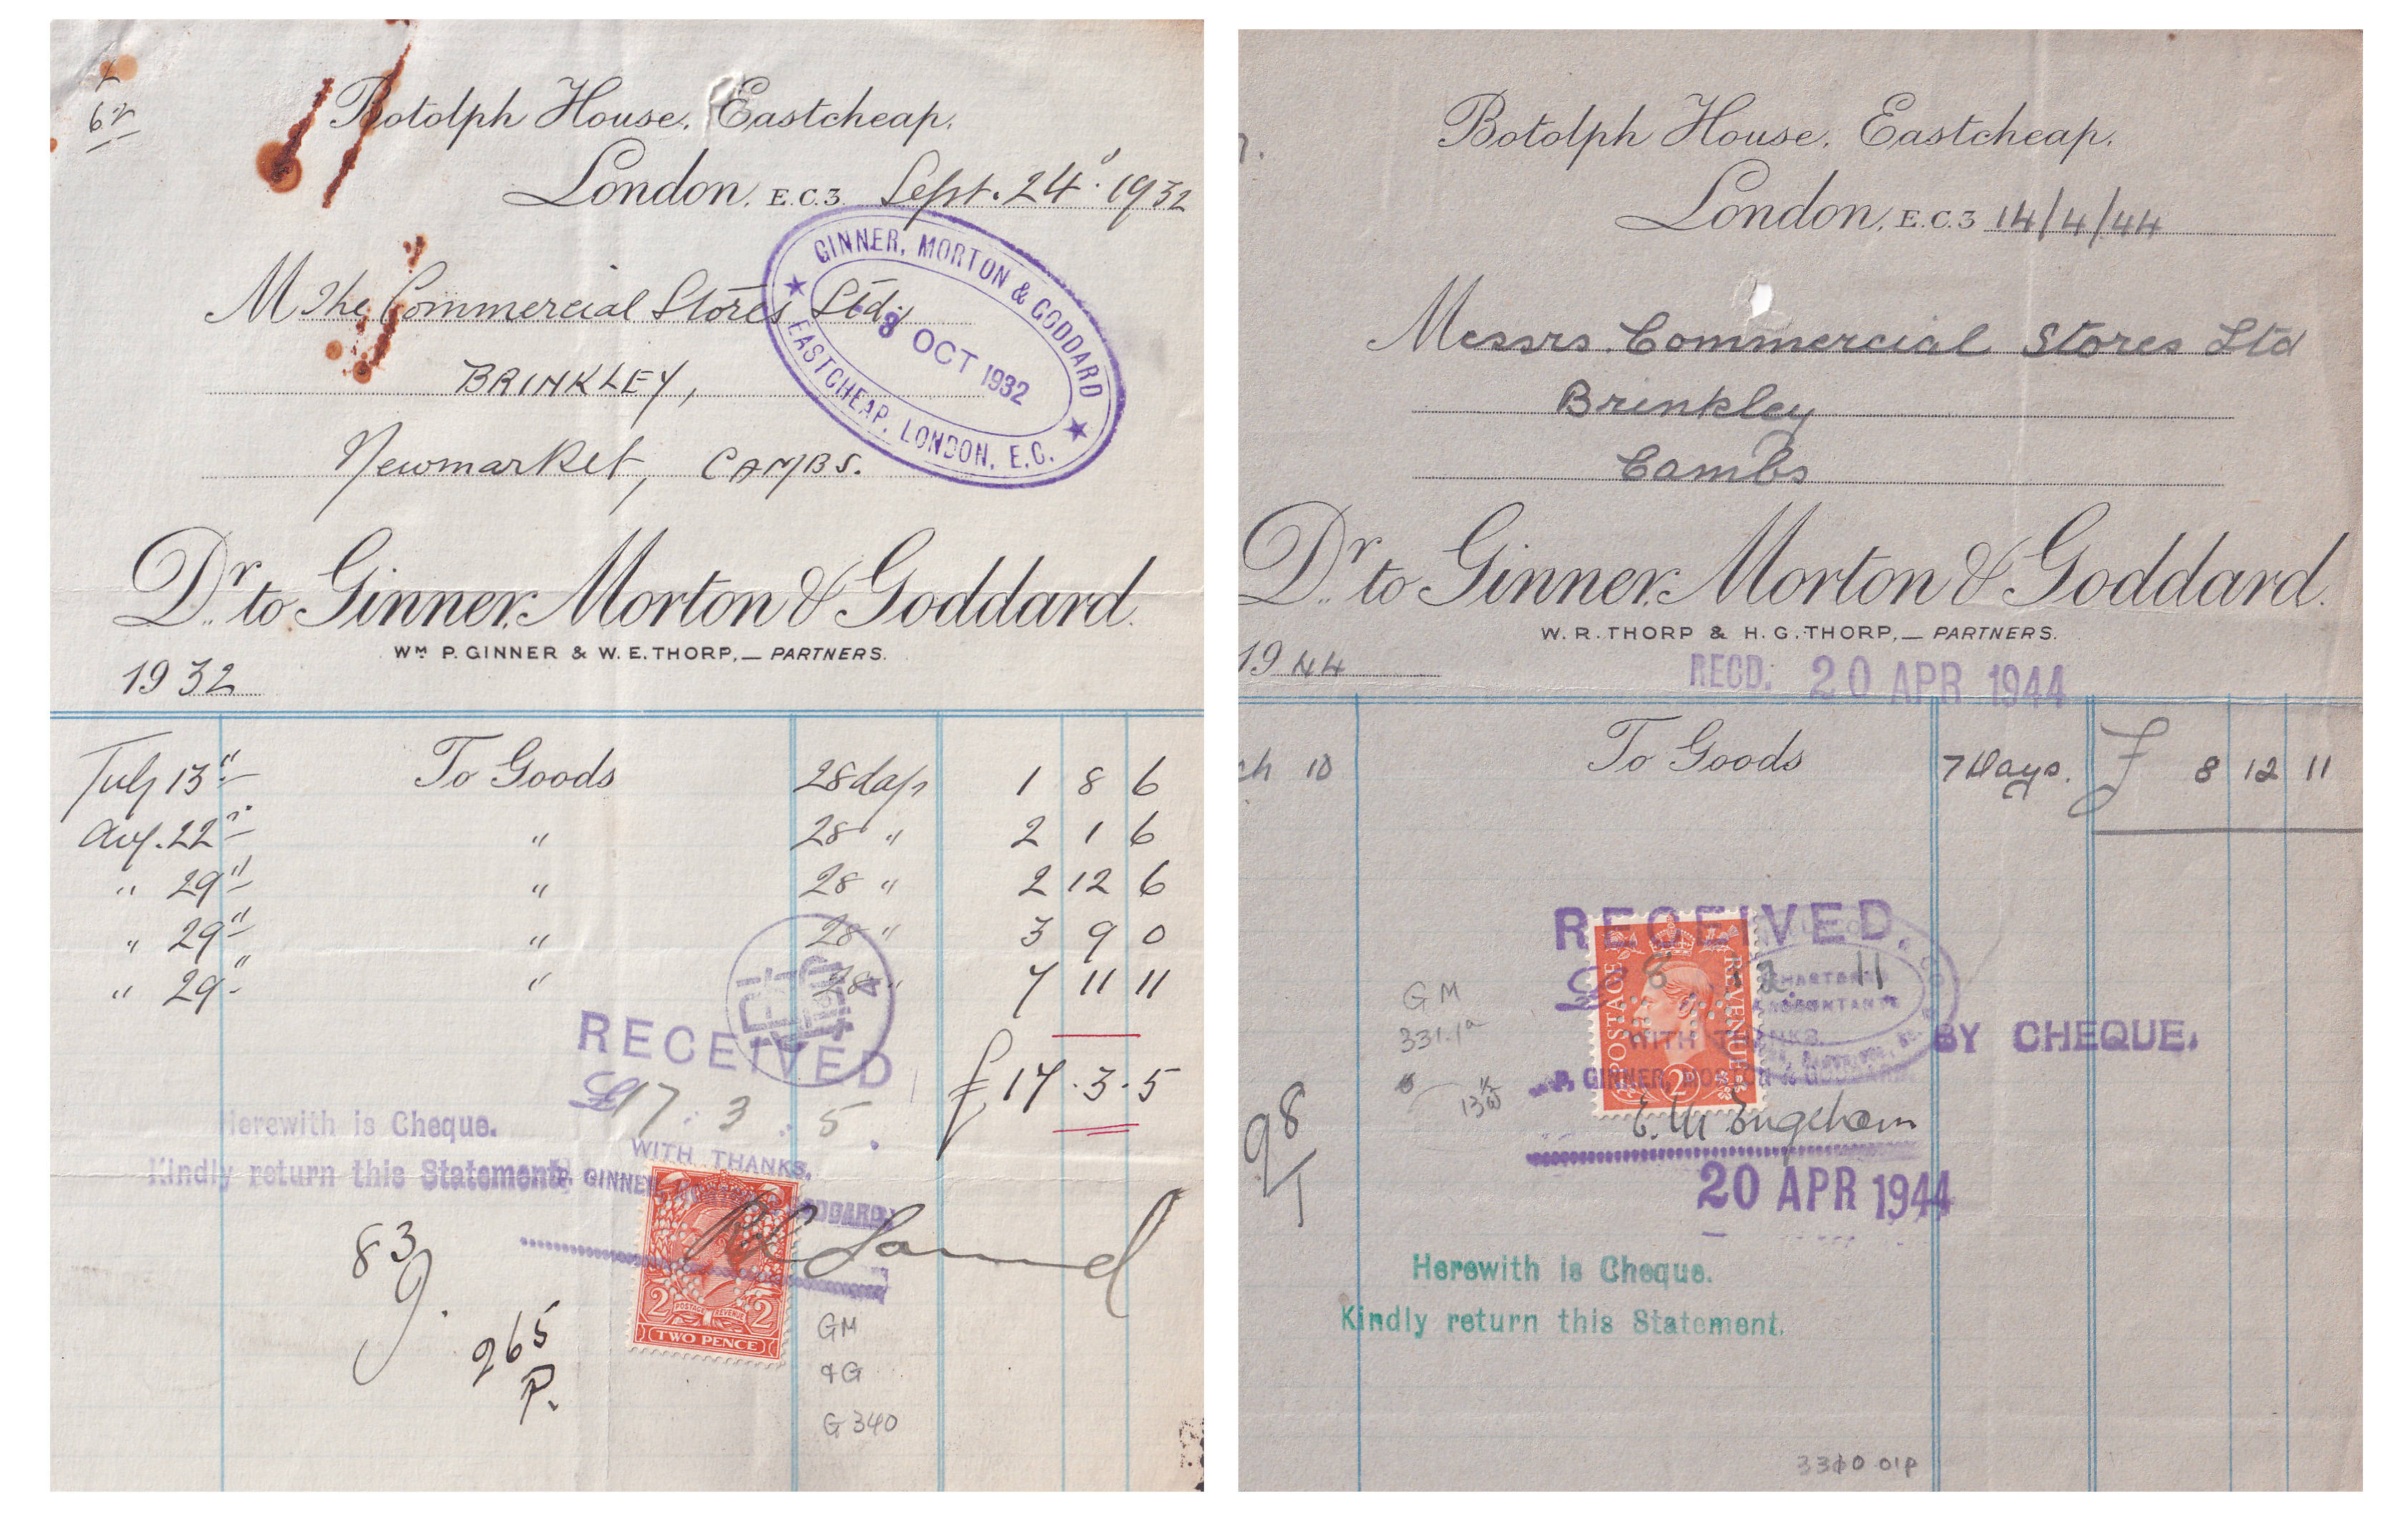 62
Botolph House, Eastcheap,
London, E.C.3. Sept. 24th 1932
M The Commercial Stores Ltd,
BRINKLEY,
Newmarket, CAMBS.
GINNER, MORTON & GODDARD
8 OCT 1932
EASTCHEAP, LONDON, E.C.
Dr. to Ginner, Morton & Goddard.
WM P. GINNER & W. E. THORP,— PARTNERS.
1932
July 13th To Goods 28 days 1 8 6
Aug. 22nd " 28 " 2 1 6
" 29th " 28 " 2 12 6
" 29th " 28 " 3 9 0
" 29th " 28 " 7 11 11
£17.3.5
RECEIVED
£17 : 3 : 5.
WITH THANKS,
P. GINNER, MORTON & GODDARD.
Herewith is Cheque.
Kindly return this Statement.
POSTAGE REVENUE
2 2
TWO PENCE
83
265
P.
GM
&G
G 340
Botolph House, Eastcheap,
London, E.C.3 14/4/44
Messrs. Commercial Stores Ltd
Brinkley
Cambs
Dr. to Ginner, Morton & Goddard.
W. R. THORP & H. G. THORP,— PARTNERS.
1944
RECD: 20 APR 1944
ch 10 To Goods 7 Days. £ 8 12 11
RECEIVED.
£ 8 12 11
POSTAGE REVENUE
2D
CHARTERED
ACCOUNTANTS
WITH THANKS.
P. GINNER, MORTON & GODDARD.
BY CHEQUE.
GM
331.1a
13½
98
1
20 APR 1944
Herewith is Cheque.
Kindly return this Statement.
3310 01P